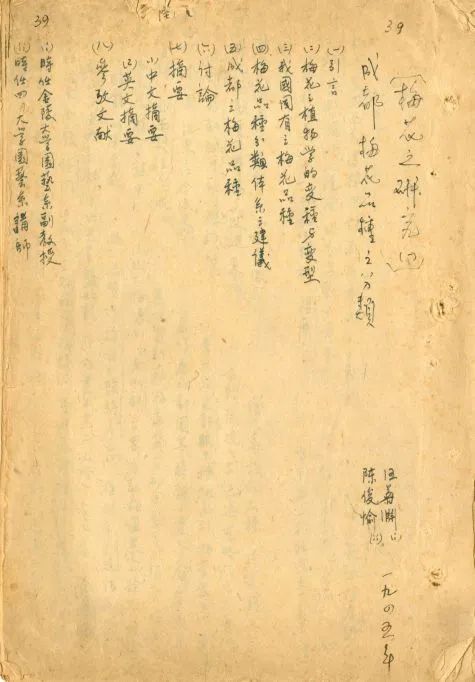 39
梅花之研究
成都梅花品種之分類
汪菊渊(1)
陈俊愉(2)
一九四五年
(一)引言
(二)梅花之植物学的变種与变型
(三)我國固有之梅花品種
(四)梅花品種分類体系之建議
(五)成都之梅花品種
(六)讨論
(七)摘要
(1)中文摘要
(2)英文摘要
(八)參攷文献
(1)時任金陵大学園藝系副教授
(2)時任四川大学園藝系講師
39